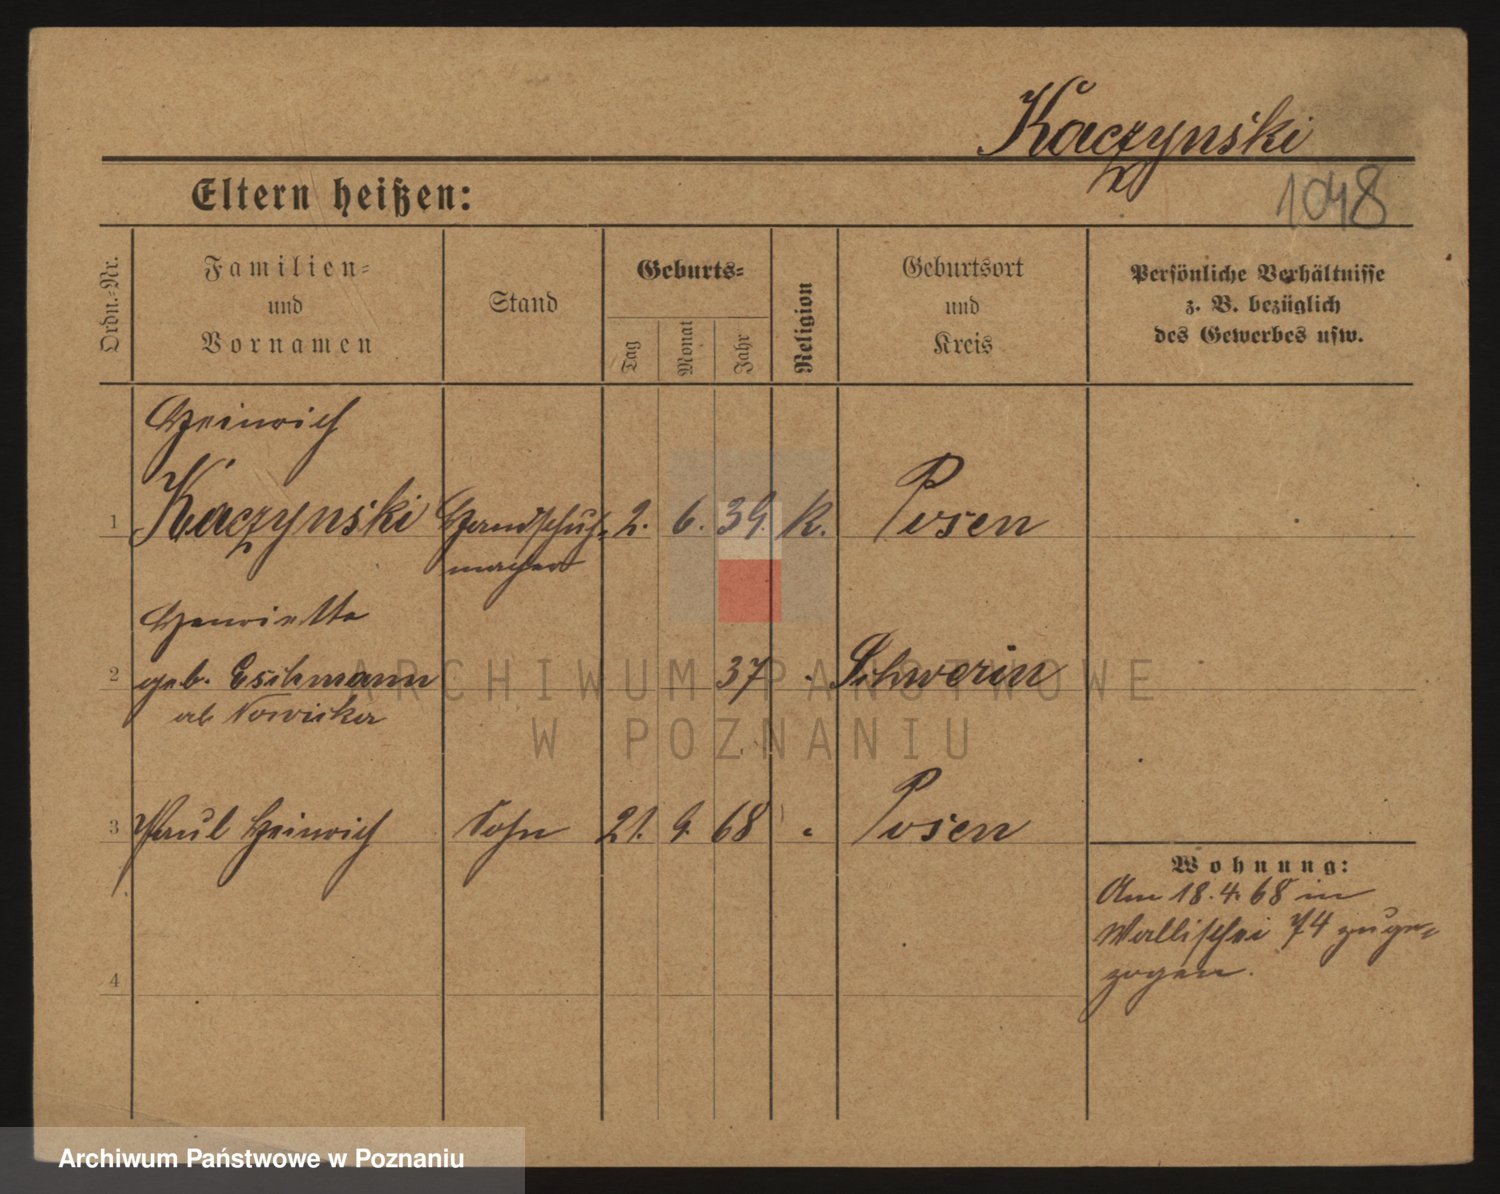 Kaczynski
Eltern heißen:
1048
Ordn.-Nr.
Familien-
und
Vornamen
Stand
Geburts-
Tag
Monat
Jahr
Religion
Geburtsort
und
Kreis
Persönliche Verhältnisse
z. B. bezüglich
des Gewerbes usw.
Heinrich
1 Kaczynski Handschuh- 2. 6. 39. K. Posen
macher
Henriette
2 geb. Eschmann 37 Schwerin
3 Paul Heinrich Sohn 21. 9. 68 Posen
Wohnung:
Am 18. 4. 68 in
Wallischei 74 zuge-
zogen.
4
ARCHIWUM PAŃSTWOWE
W POZNANIU
Archiwum Państwowe w Poznaniu